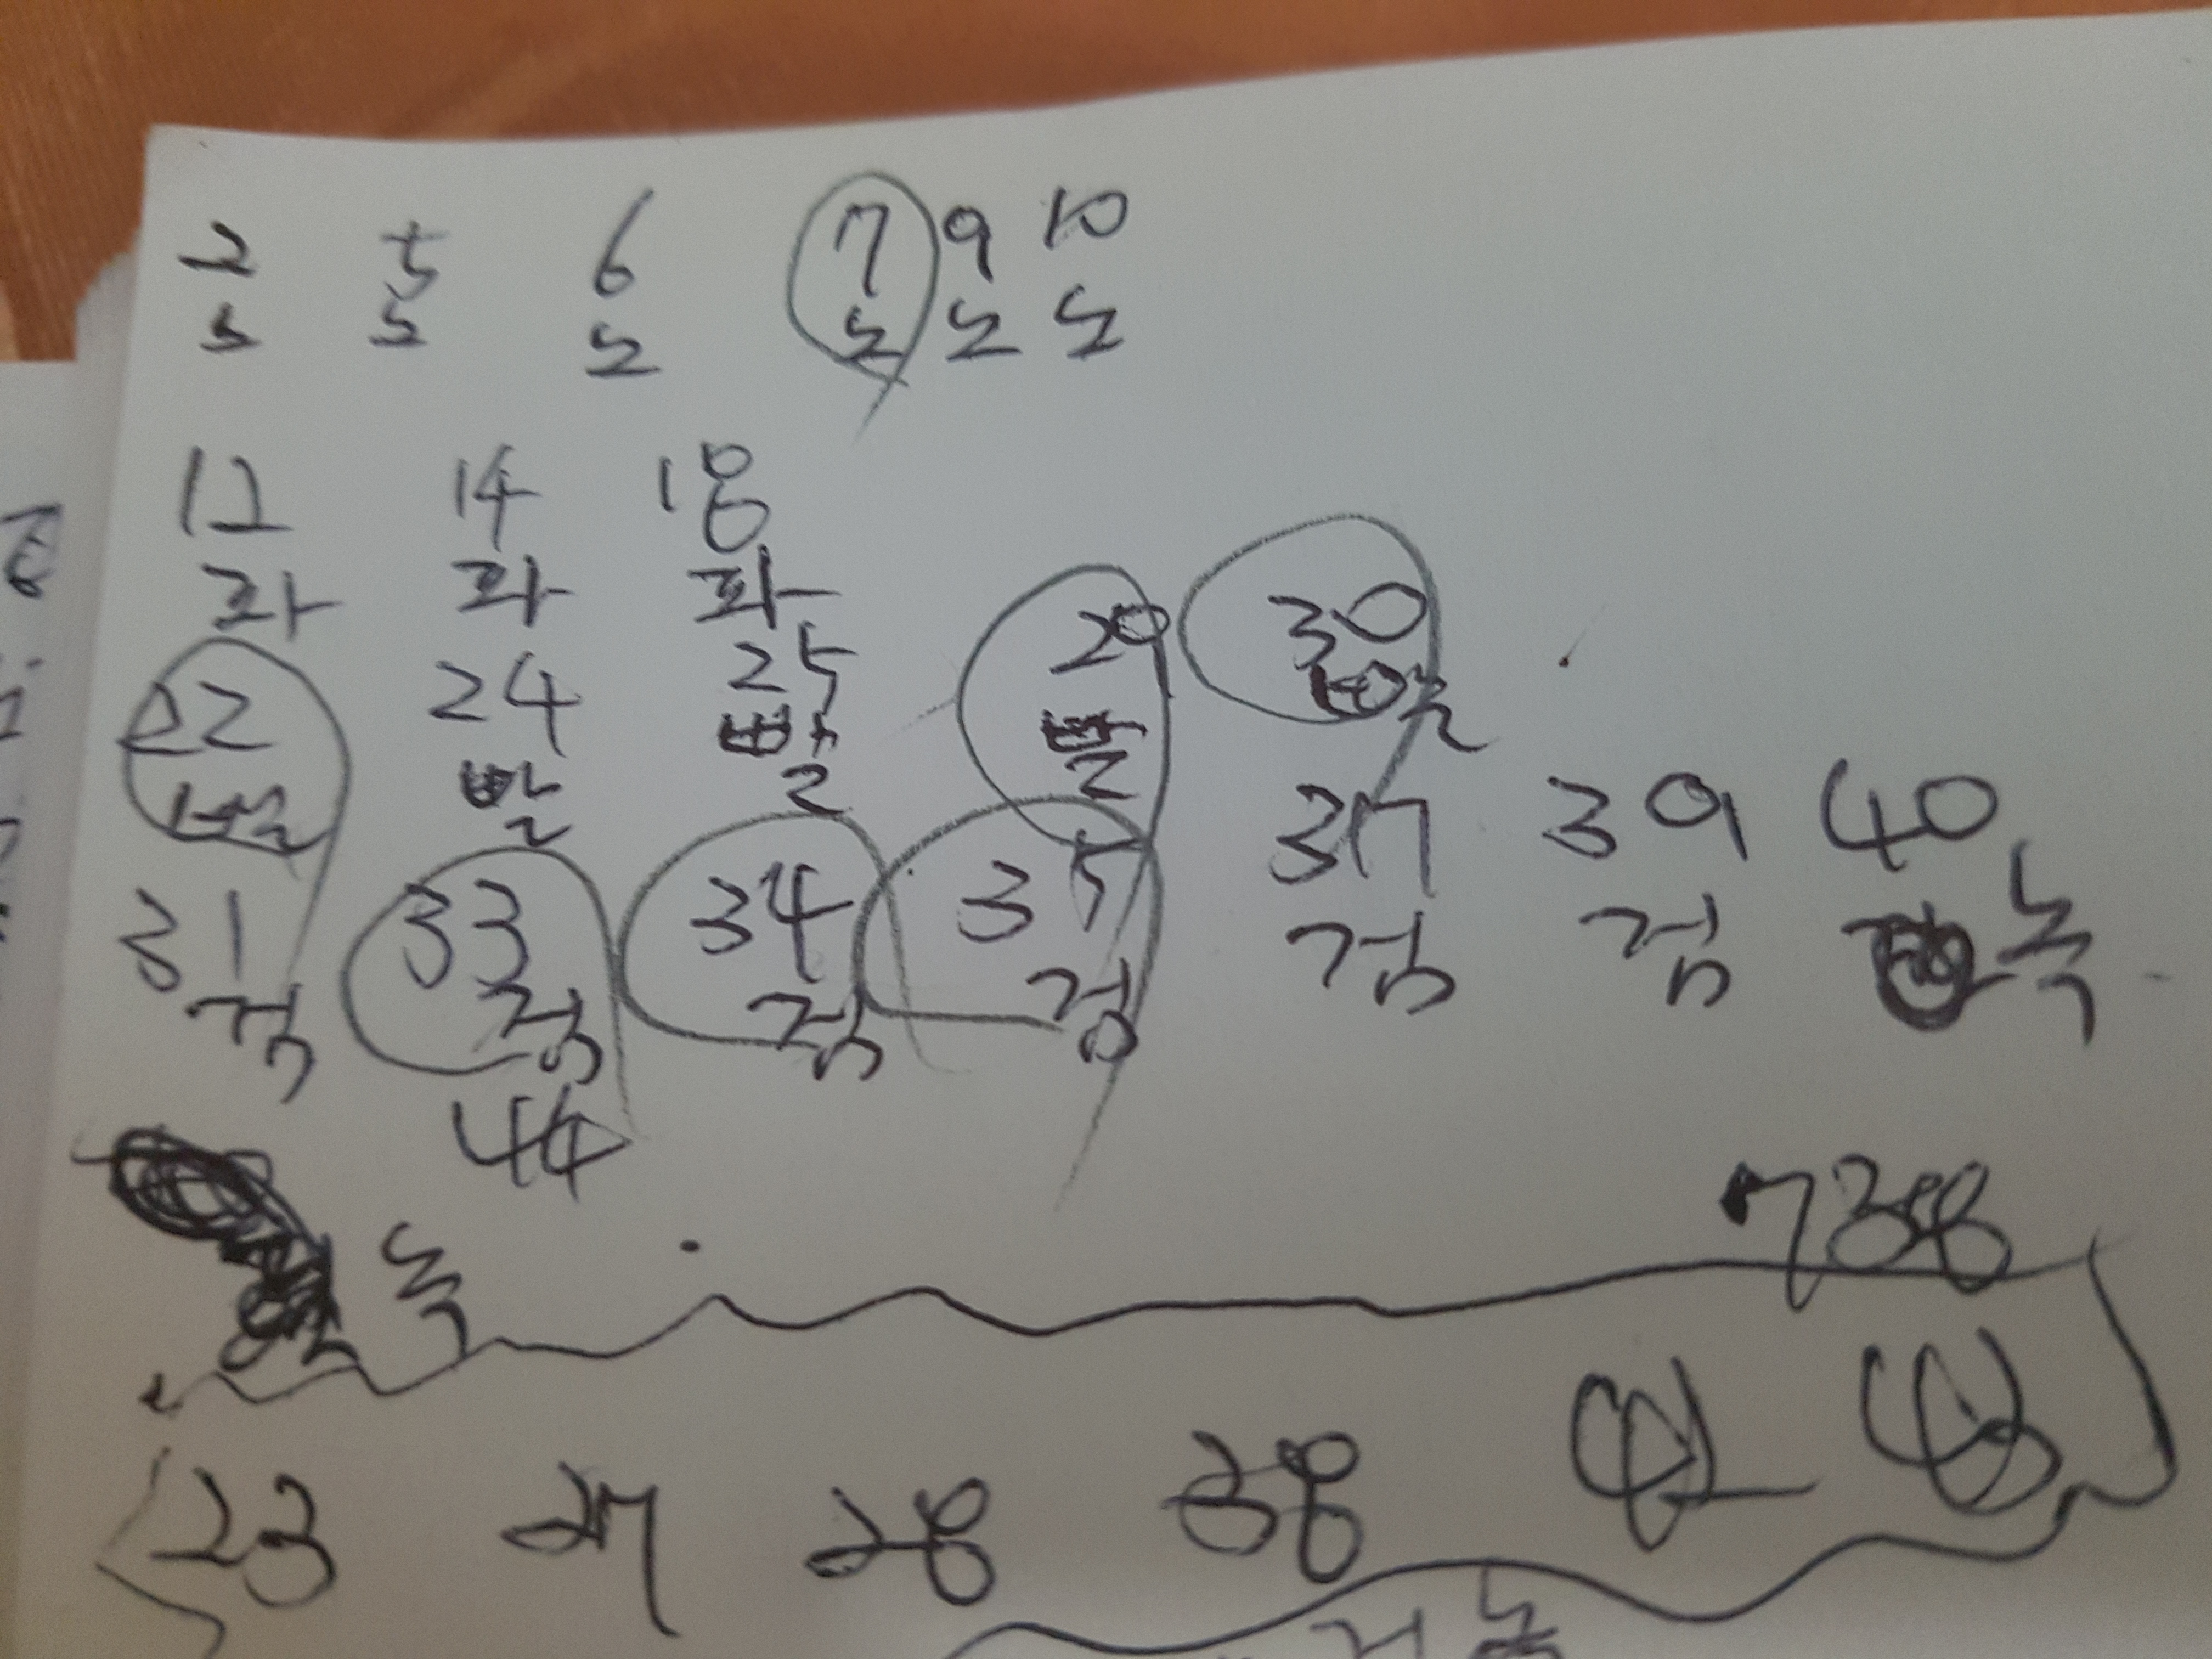 2 5 6 7 9 10
노 노 노 노 노 노
12 14 18
파 파 파
22 24 25 29 30
빨 빨 빨 빨 빨
31 33 34 35 37 39 40
검 검 검 검 검 검 녹
44
녹
738
23 27 28 38 42 43